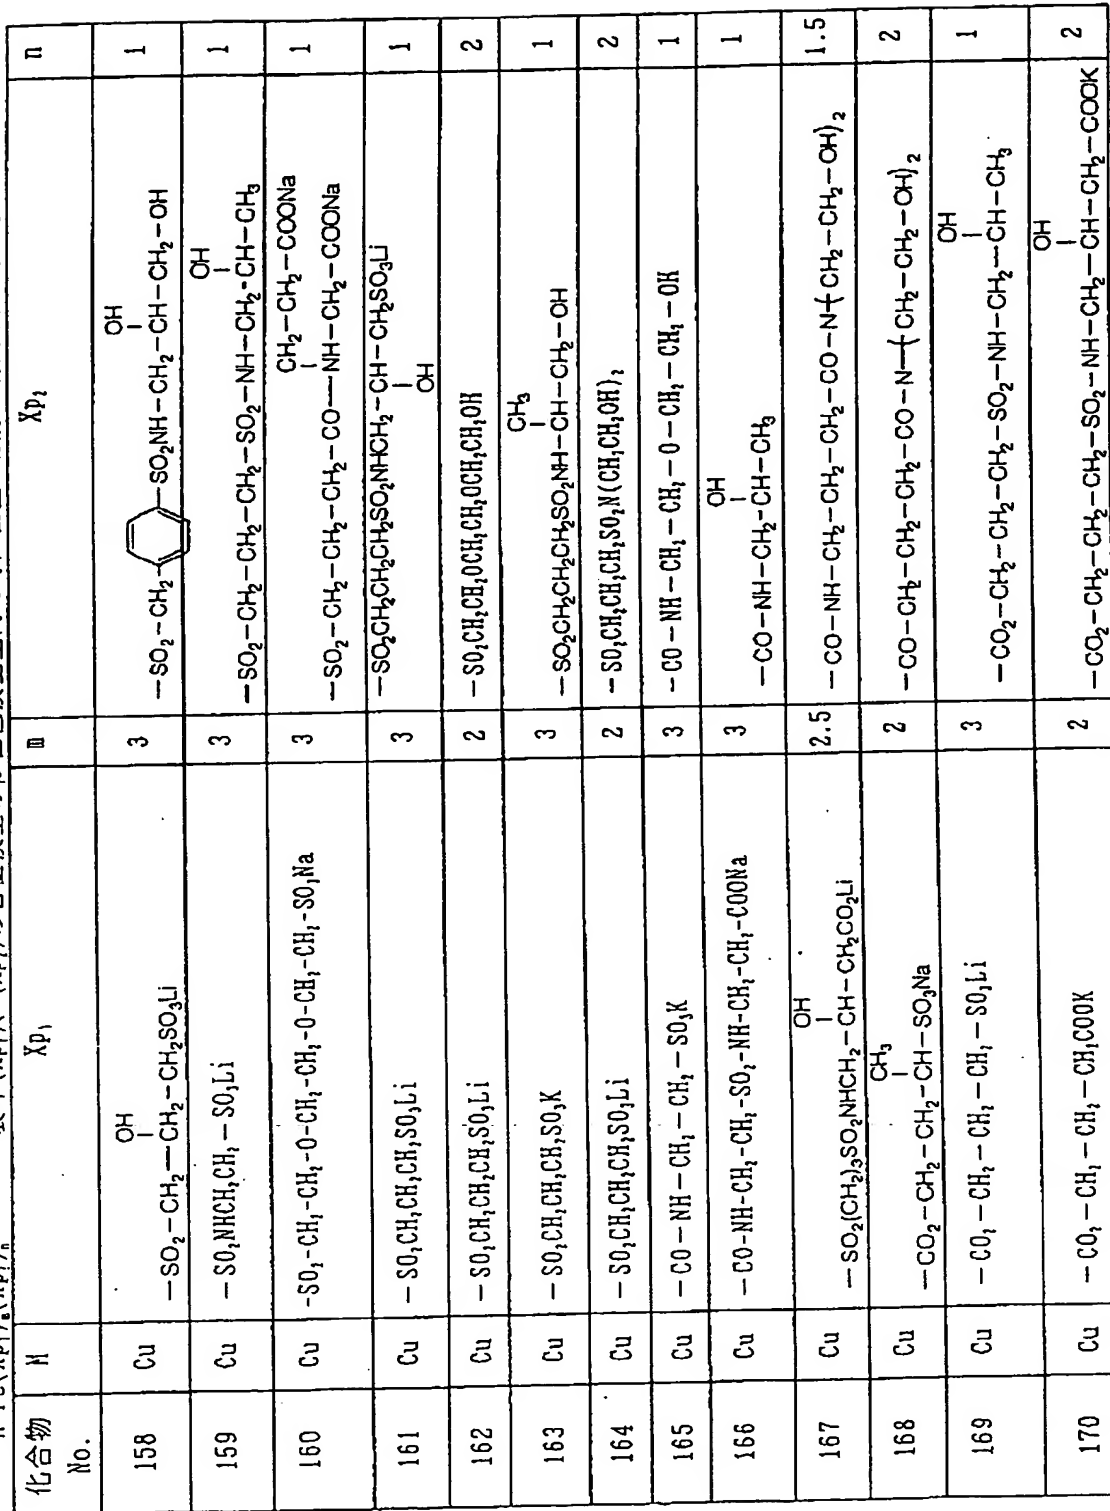 化合物 No. M Xp₁ m Xp₂ n
158 Cu —SO₂—CH₂—CH(OH)₂—CH₂SO₃Li 3 —SO₂—CH₂—⌬—SO₂NH—CH₂—CH(OH)—CH₂—OH 1
159 Cu —SO₂NHCH₂CH₂—SO₃Li 3 —SO₂—CH₂—CH₂—CH₂—SO₂—NH—CH₂-CH(OH)—CH₃ 1
160 Cu -SO₂-CH₂-CH₂-O-CH₂-CH₂-O-CH₂-CH₂-SO₃Na 3 —SO₂—CH₂—CH₂—CH₂—CO—N(CH₂—CH₂—COONa)H—CH₂—CH₂—COONa 1
161 Cu —SO₂CH₂CH₂CH₂SO₃Li 3 —SO₂CH₂CH₂CH₂SO₂NHCH₂—CH(OH)—CH₂SO₃Li 1
162 Cu —SO₂CH₂CH₂CH₂SO₃Li 2 —SO₂CH₂CH₂OCH₂CH₂OCH₂CH₂OH 2
163 Cu —SO₂CH₂CH₂CH₂SO₃K 3 —SO₂CH₂CH₂CH₂SO₂NH—CH(CH₃)—CH₂—OH 1
164 Cu —SO₂CH₂CH₂CH₂SO₃Li 2 —SO₂CH₂CH₂CH₂SO₂N(CH₂CH₂OH)₂ 2
165 Cu —CO—NH—CH₂—CH₂—SO₃K 3 —CO—NH—CH₂—CH₂—O—CH₂—CH₂—OH 1
166 Cu —CO-NH-CH₂-CH₂-SO₂-NH-CH₂-CH₂-COONa 3 —CO—NH—CH₂-CH(OH)—CH₃ 1
167 Cu —SO₂(CH₂)₃SO₂NHCH₂—CH(OH)—CH₂CO₂Li 2.5 —CO—NH—CH₂—CH₂—CH₂—CO—N(CH₂—CH₂—OH)₂ 1.5
168 Cu —CO₂—CH₂—CH₂—CH(CH₃)—SO₃Na 2 —CO—CH₂—CH₂—CH₂—CO—N(CH₂—CH₂—OH)₂ 2
169 Cu —CO₂—CH₂—CH₂—CH₂—SO₃Li 3 —CO₂—CH₂—CH₂—CH₂—SO₂—NH—CH₂—CH(OH)—CH₃ 1
170 Cu —CO₂—CH₂—CH₂—CH₂COOK 2 —CO₂—CH₂—CH₂—CH₂—SO₂—NH—CH₂—CH(OH)—CH₂—COOK 2